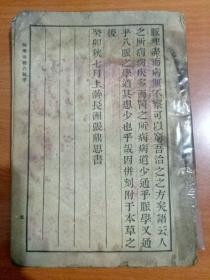 脈理炳而病無不察可以窮吾治之之方矣語云人
之所病病疾多而醫之所病病道少通乎脈學又通
乎八脈之學道其患少也乎哉因併刻附于本草之
後
癸卯秋七月上澣長洲張鼎思書